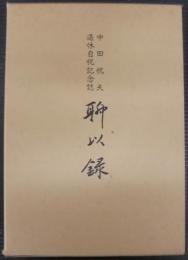 中田祝夫
退休自祝記念誌
聊以録